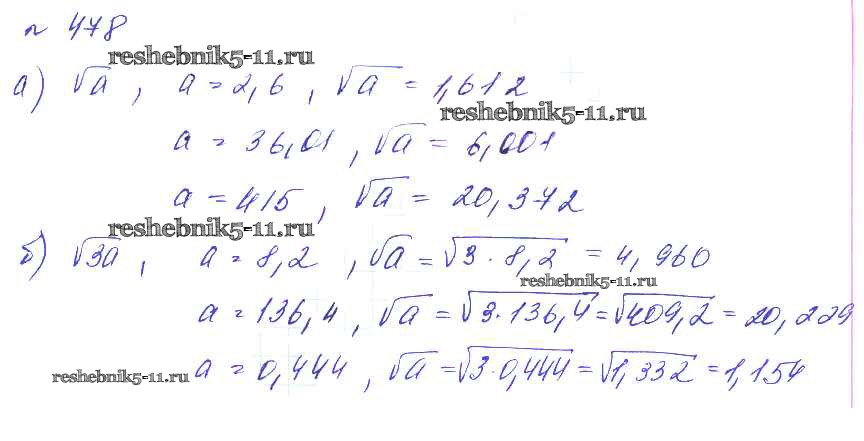 № 478
reshebnik5-11.ru
а) √a , a = 2,6 , √a = 1,612
reshebnik5-11.ru
a = 36,01 , √a = 6,001
a = 415 , √a = 20,372
reshebnik5-11.ru
б) √3a , a = 8,2 , √a = √3·8,2 = 4,960
reshebnik5-11.ru
a = 136,4 , √a = √3·136,4 = √409,2 = 20,229
reshebnik5-11.ru a = 0,444 , √a = √3·0,444 = √1,332 = 1,154